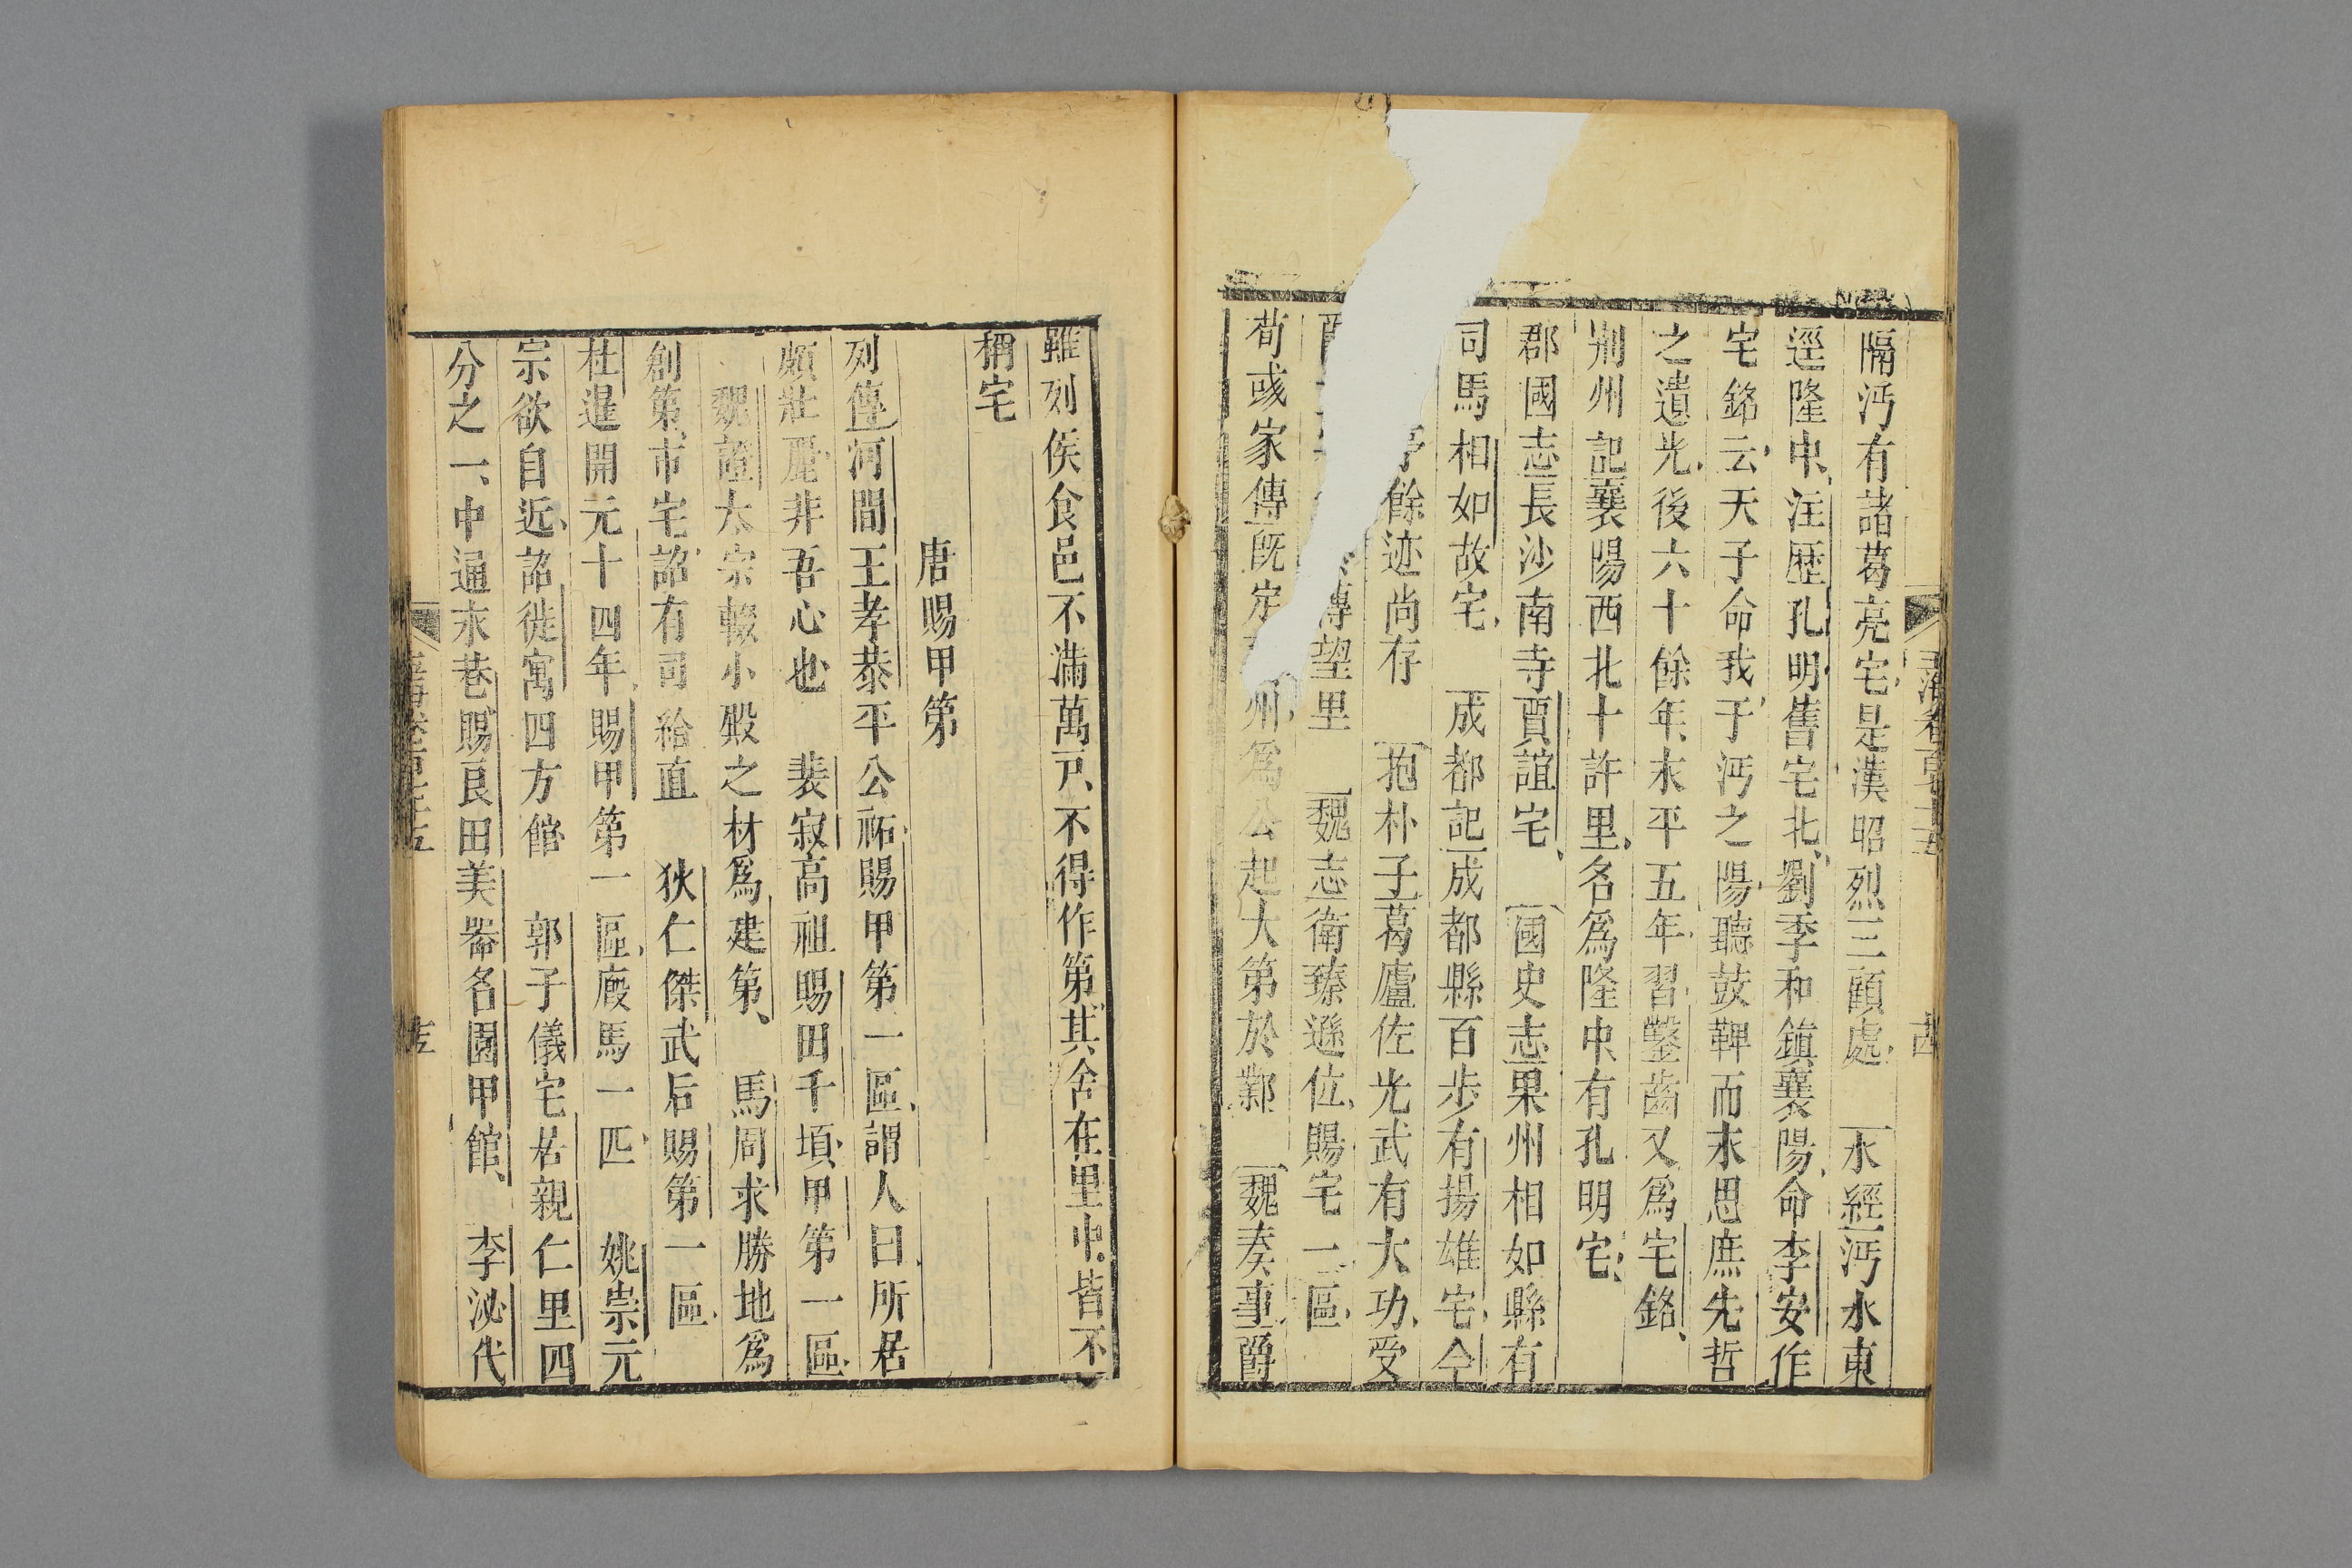 隔沔有諸葛亮宅是漢昭烈三顧處 水經沔水東
逕隆中注歷孔明舊宅北劉季和鎮襄陽命李安作
宅銘云天子命我于沔之陽聽鼓鞞而永思庶先哲
之遺光後六十餘年永平五年習鑿齒又為宅銘
荆州記襄陽西北十許里名為隆中有孔明宅
郡國志長沙南寺賈誼宅 國史志果州相如縣有
司馬相如故宅 成都記成都縣百步有揚雄宅今
亭餘迹尚存 抱朴子葛廬佐光武有大功受
爵 傳望里 魏志衛臻遜位賜宅一區
荀彧家傳既定 州為公起大第於鄴 魏奏事爵
雖列侯食邑不滿萬戸不得作第其舍在里中皆不
稱宅
唐賜甲第
列傳河間王孝恭平公祏賜甲第一區謂人曰所居
頗壯麗非吾心也 裴寂高祖賜田千頃甲第一區
魏證太宗輟小殿之材為建第 馬周求勝地為
創第市宅詔有司給直 狄仁傑武后賜第一區
杜暹開元十四年賜甲第一區廄馬一匹 姚崇元
宗欲自近詔徙寓四方館 郭子儀宅居親仁里四
分之一中通永巷賜良田美器名園甲館 李泌代